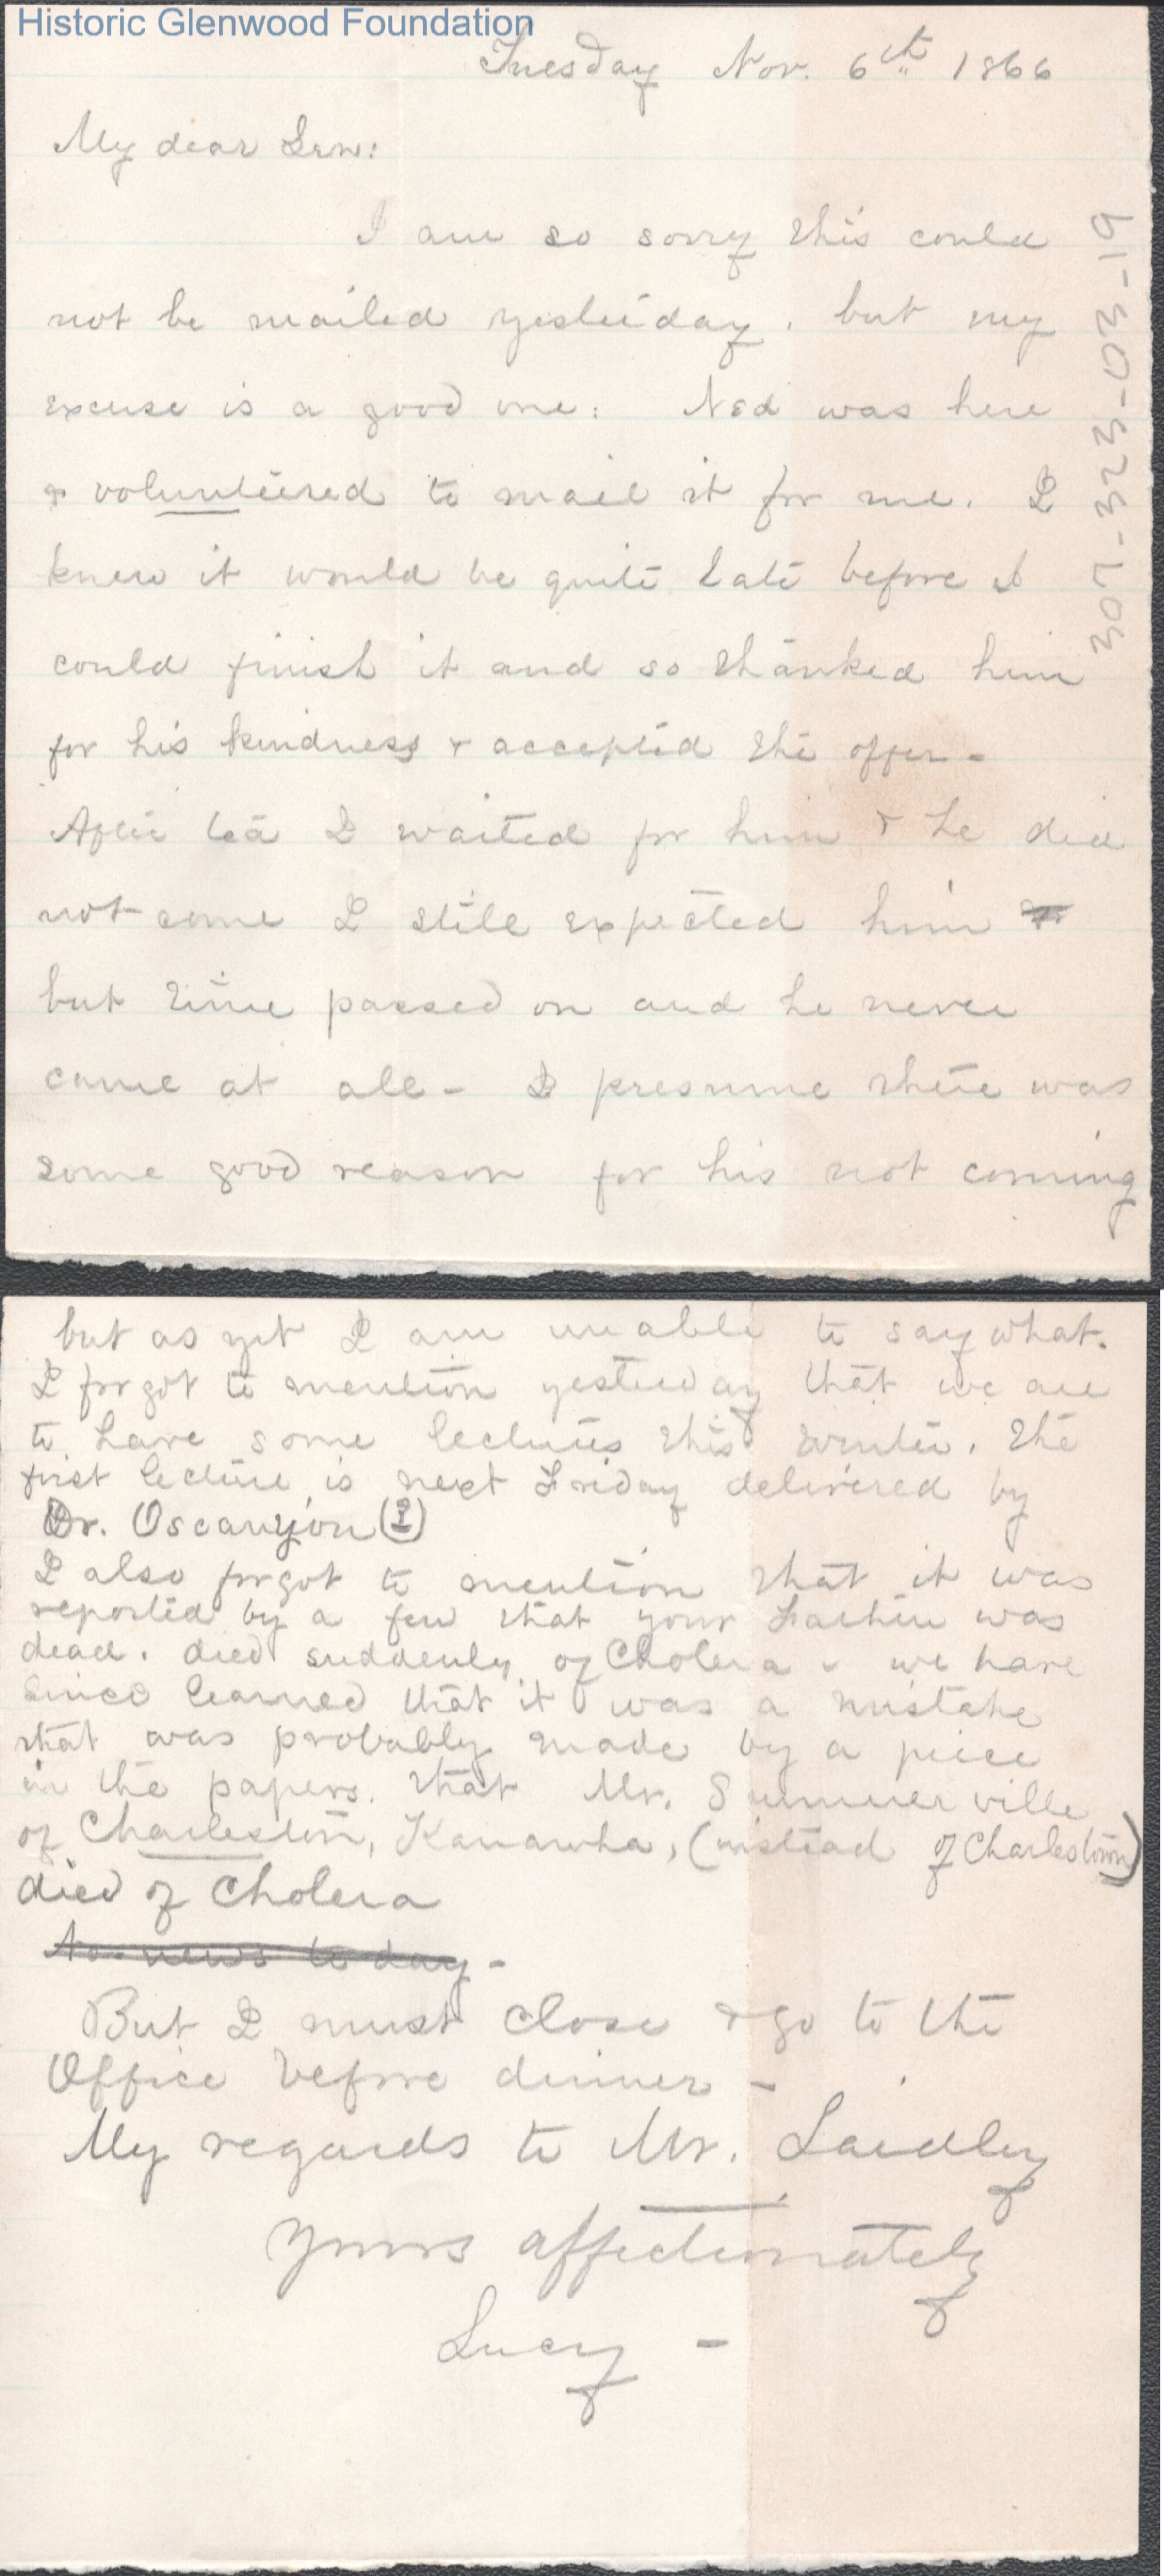 Historic Glenwood Foundation
Tuesday Nov. 6th 1866
My dear Lew:
I am so sorry this could
not be mailed yesterday, but my
excuse is a good one: Ned was here
& volunteered to mail it for me. I
knew it would be quite late before I
could finish it and so thanked him
for his kindness & accepted the offer -
After tea I waited for him & he did
not come I still expected him
but time passed on and he never
came at all - I presume there was
some good reason for his not coming
307-323-03-19
but as yet I am unable to say what.
I forgot to mention yesterday that we are
to have some lectures this winter. The
first lecture is next Friday delivered by
Dr. Oscanyon (?)
I also forgot to mention that it was
reported by a few that your Father was
dead. died suddenly of Cholera - we have
since learned that it was a mistake
that was probably made by a piece
in the papers. that Mr. Summerville
of Charleston, Kanawha, (instead of Charlestown)
died of Cholera
No news to day -
But I must close & go to the
Office before dinner -
My regards to Mr. Laidley
Yours affectionately
Lucy -